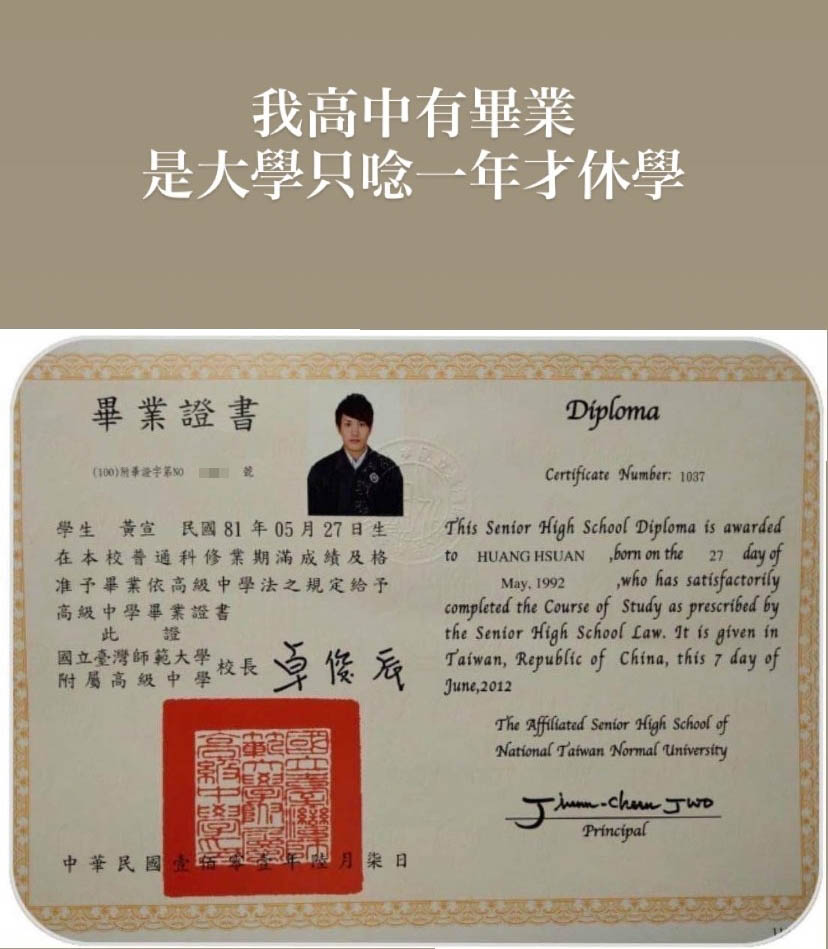 我高中有畢業
是大學只唸一年才休學
畢業證書
(100)附畢證字第NO 號
學生 黃宣 民國81年05月27日生
在本校普通科修業期滿成績及格
准予畢業依高級中學法之規定給予
高級中學畢業證書
此證
國立臺灣師範大學
附屬高級中學
校長 卓俊辰
國立臺灣師範大學附屬高級中學印
中華民國壹佰零壹年陸月柒日
Diploma
Certificate Number: 1037
This Senior High School Diploma is awarded
to HUANG HSUAN ,born on the 27 day of
May, 1992 ,who has satisfactorily
completed the Course of Study as prescribed by
the Senior High School Law. It is given in
Taiwan, Republic of China, this 7 day of
June,2012
The Affiliated Senior High School of
National Taiwan Normal University
Jiunn-Chern Jwo
Principal